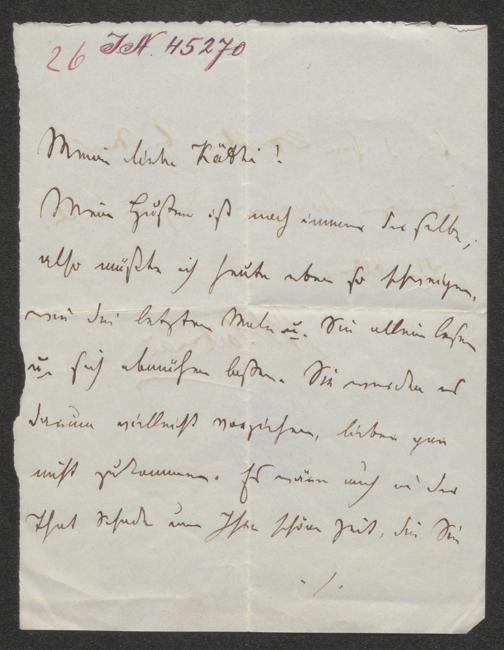 26 I.N. 45270
Meine liebe Käthi!
Mein Husten ist noch immer derselbe,
also müßte ich heute eben so schweigen,
wie die letzten Male u. Sie allein lesen
u. sich abmühen lassen. Sie werden es
darum vielleicht vorziehen, lieber gar
nicht zu kommen. Es wäre auch in der
That schade um Ihre schöne Zeit, die Sie
./.